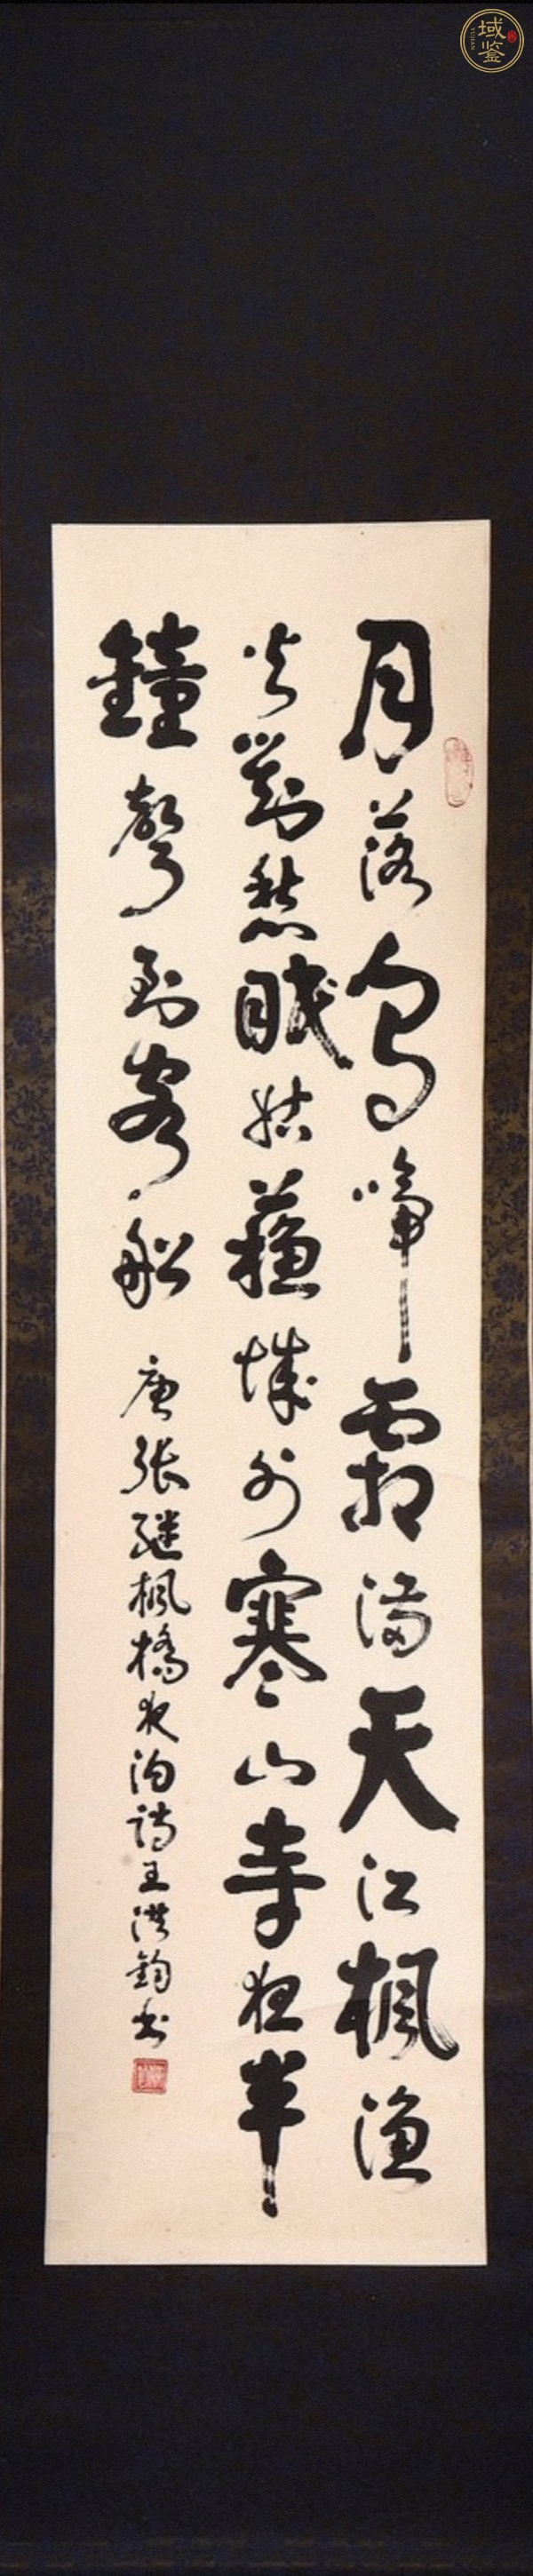 域鉴
YUJIAN
月落烏啼霜滿天江楓漁
火對愁眠姑蘓城外寒山寺夜半
鐘聲到客船 唐張继楓橋夜泊詩王洪鈞书